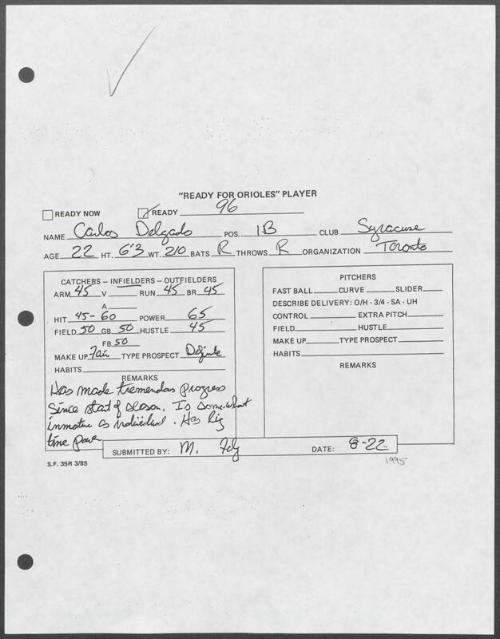 "READY FOR ORIOLES" PLAYER
READY NOW READY 96
NAME Carlos Delgado POS. 1B CLUB Syracuse
AGE 22 HT. 6'3 WT. 210 BATS R THROWS R ORGANIZATION Toronto
CATCHERS – INFIELDERS – OUTFIELDERS
ARM 45 V RUN 45 BR 45
A
HIT 45-60 POWER 65
FIELD 50 GB 50 HUSTLE 45
FB 50
MAKE UP Fair TYPE PROSPECT Definite
HABITS
REMARKS
Has made tremendous progress
since start of season. Is somewhat
immature as individual. Has big
time power
PITCHERS
FAST BALL CURVE SLIDER
DESCRIBE DELIVERY: O/H - 3/4 - SA - UH
CONTROL EXTRA PITCH
FIELD HUSTLE
MAKE UP TYPE PROSPECT
HABITS
REMARKS
SUBMITTED BY: M. DATE: 8-22
S.F. 35R 3/85
1995